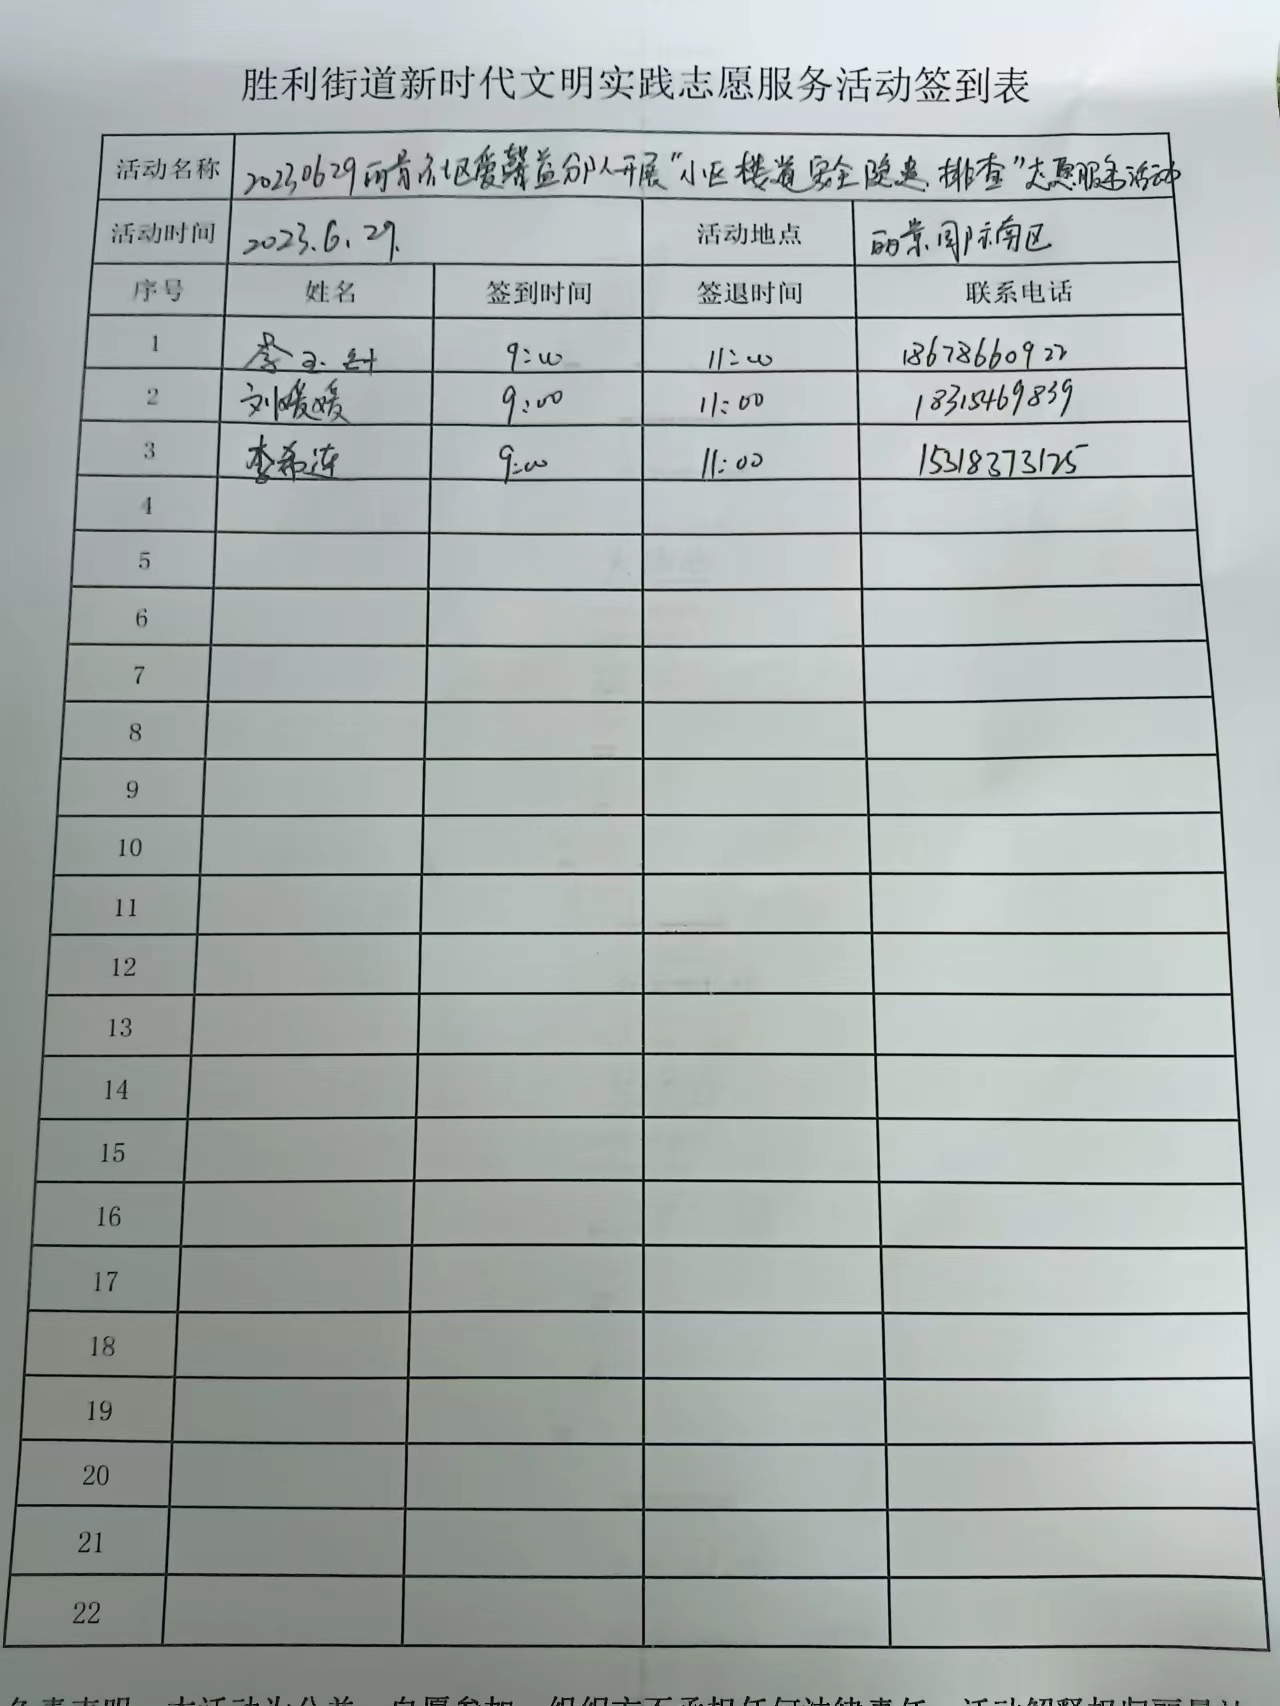 胜利街道新时代文明实践志愿服务活动签到表
活动名称 20230629丽景社区爱馨益分队开展“小区楼道安全隐患排查”志愿服务活动
活动时间 2023.6.29. 活动地点 丽景国际南区
序号 姓名 签到时间 签退时间 联系电话
1 李玉 9:00 11:00 18678660922
2 刘媛媛 9:00 11:00 18315469839
3 李希连 9:00 11:00 15318373125
4
5
6
7
8
9
10
11
12
13
14
15
16
17
18
19
20
21
22
免责声明：本活动为公益、自愿参加，组织方不承担任何法律责任，活动解释权归丽景社